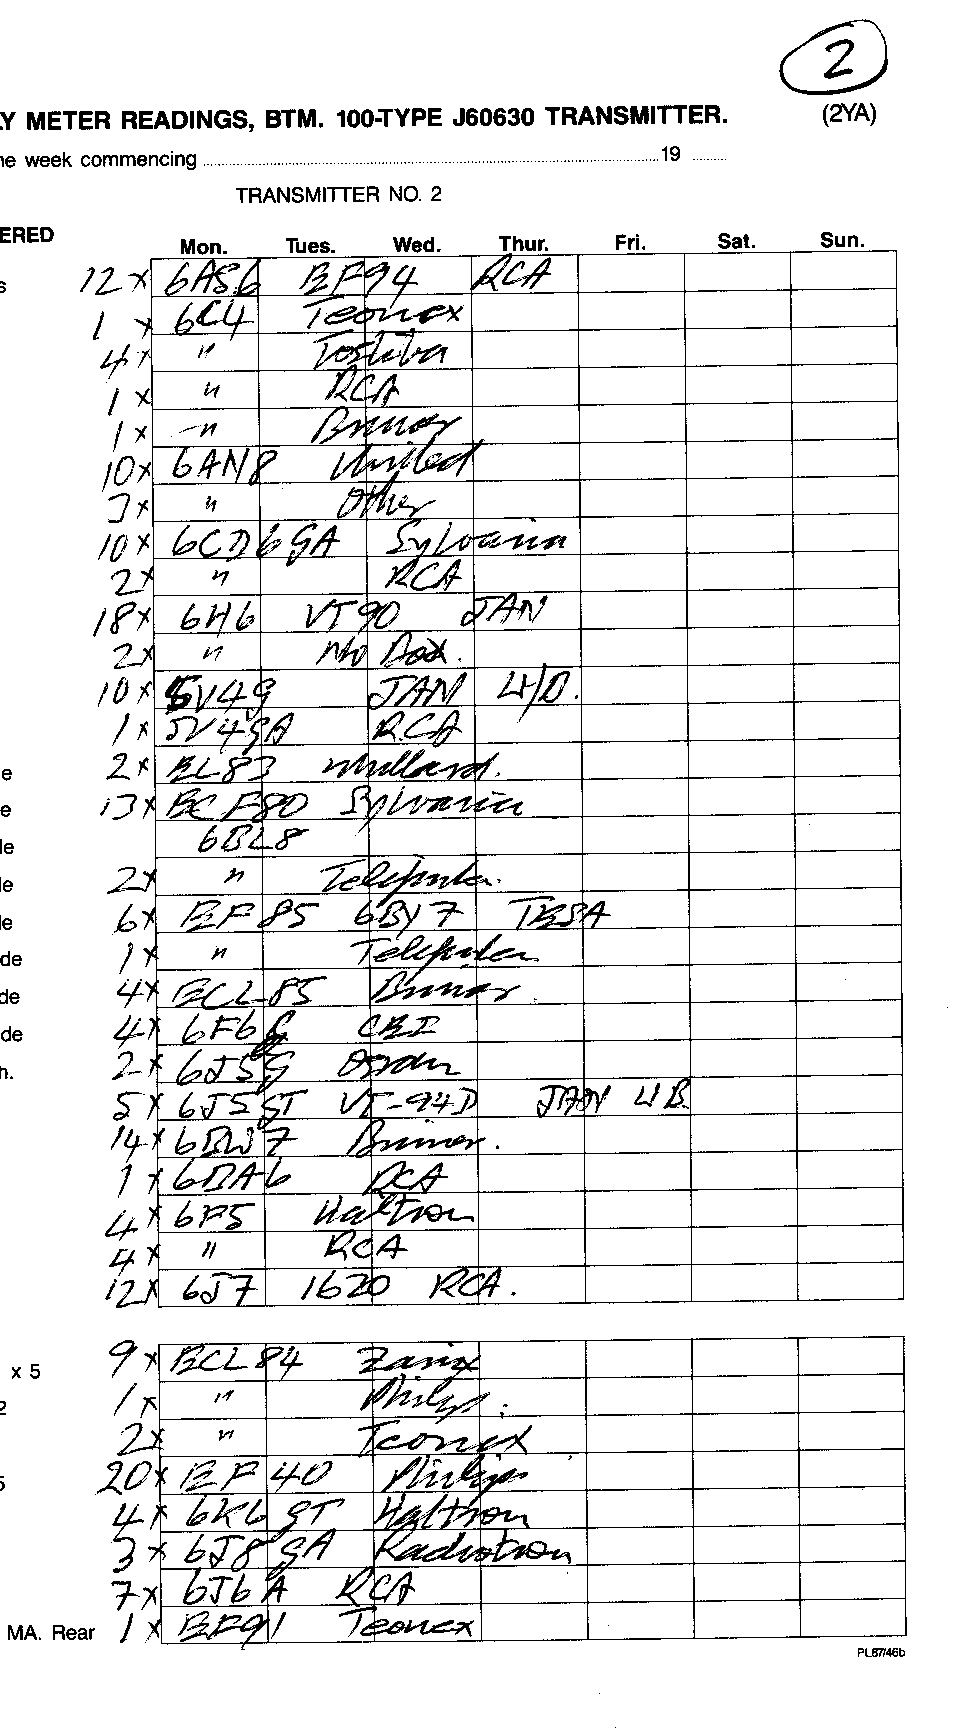 2
LY METER READINGS, BTM. 100-TYPE J60630 TRANSMITTER. (2YA)
he week commencing 19
TRANSMITTER NO. 2
ERED
Mon. Tues. Wed. Thur. Fri. Sat. Sun.
s 12 x 6AS6 EF94 RCA
1 x 6C4 Teonex
4 x " Toshiba
1 x " RCA
1 x " Brimar
10 x 6AN8 United
3 x " Other
10 x 6CD6GA Sylvania
2 x " RCA
18 x 6H6 VT90 JAN
2 x " No Box.
10 x 5V4G JAN
1 x 5V4GA RCA
e 2 x EL83 Mullard.
e 13 x ECF80 Sylvania
le 6BL8
le 2 x " Telefunken.
le 6 x EF85 6BY7 TESA
de 1 x " Telefunken
de 4 x ECL85 Brimar.
de 4 x 6F6G CBI
h. 2 x 6J5G Osram
5 x 6J5GT VT-94D JAN
14 x 6BW7 Brimar.
1 x 6BA6 RCA
4 x 6F5 Haltron
4 x " RCA
12 x 6J7 1620 RCA.
x 5 9 x ECL84 Zaerix
2 1 x " Philips.
2 x " Teonex
5 20 x EF40 Philips
4 x 6K6GT Haltron
3 x 6J8GA Radiotron
7 x 6J6A RCA
MA. Rear 1 x EF91 Teonex
PL87/46b